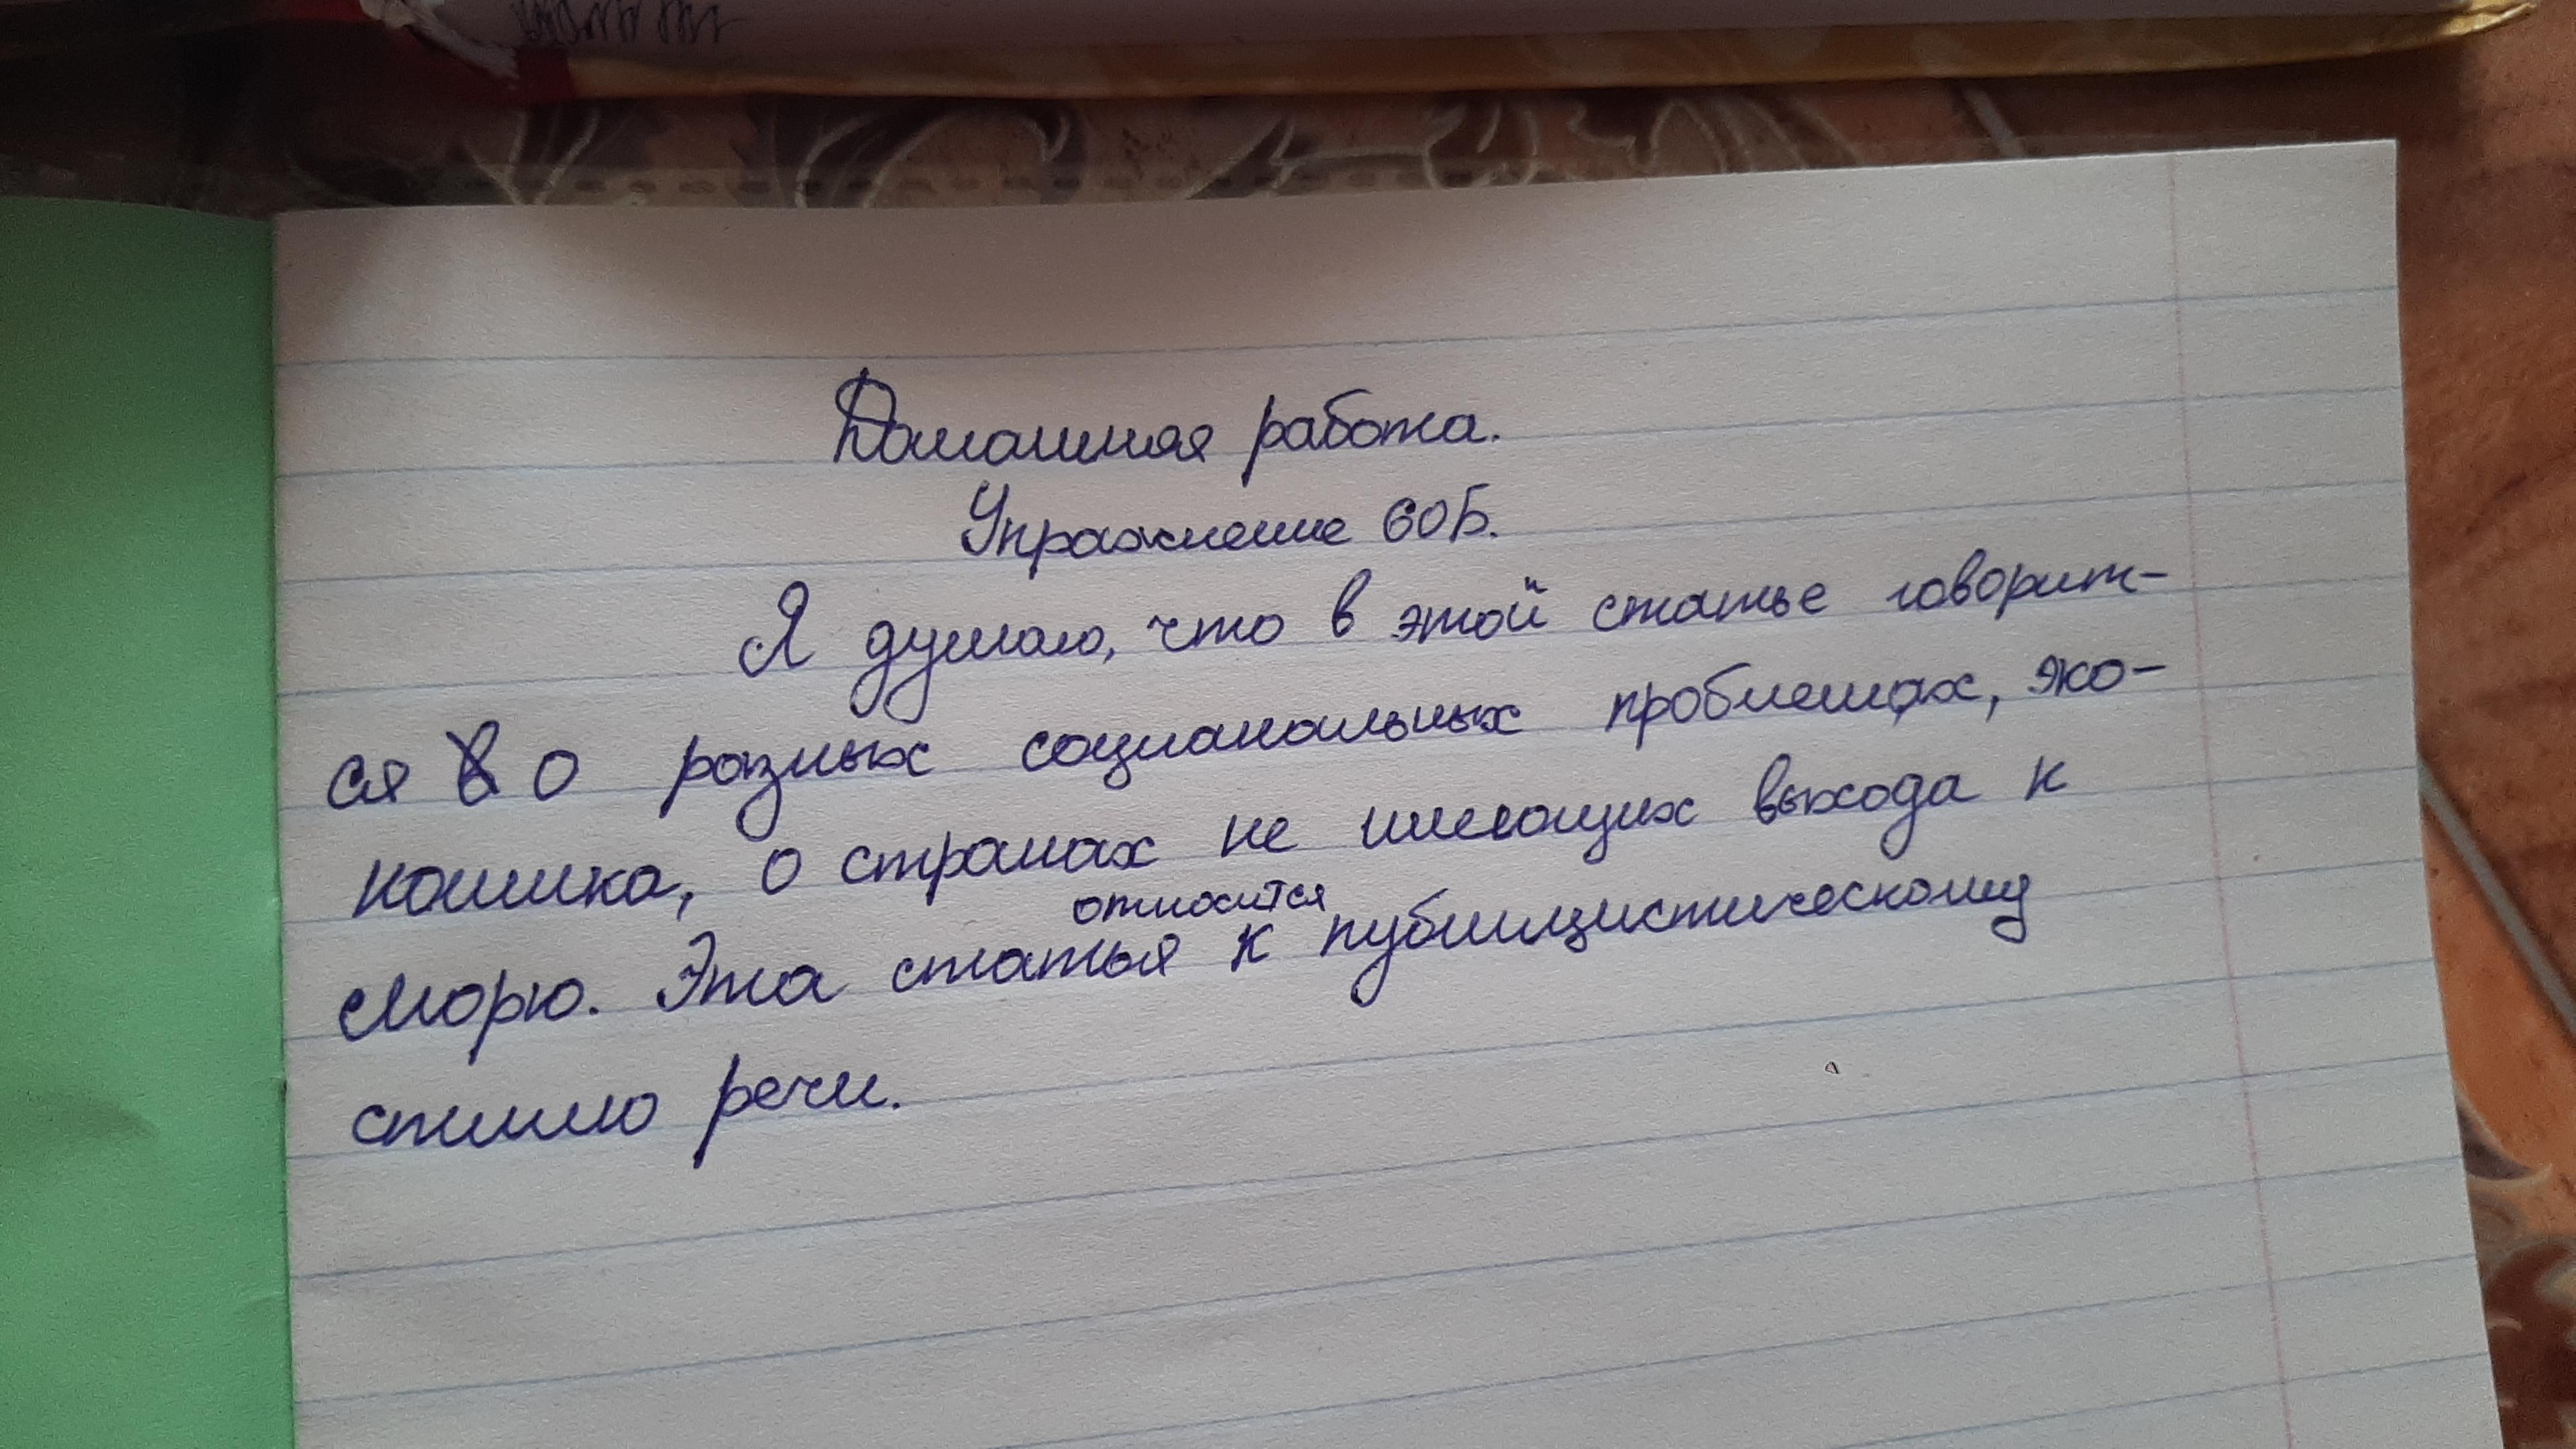 Домашняя работа.
Упражнение 60Б.
Я думаю, что в этой статье говорит-
ся о разных социанальных проблемах, эко-
номика, о странах не имеющих выхода к
относится
морю. Эта статья к публицистическому
стилю речи.